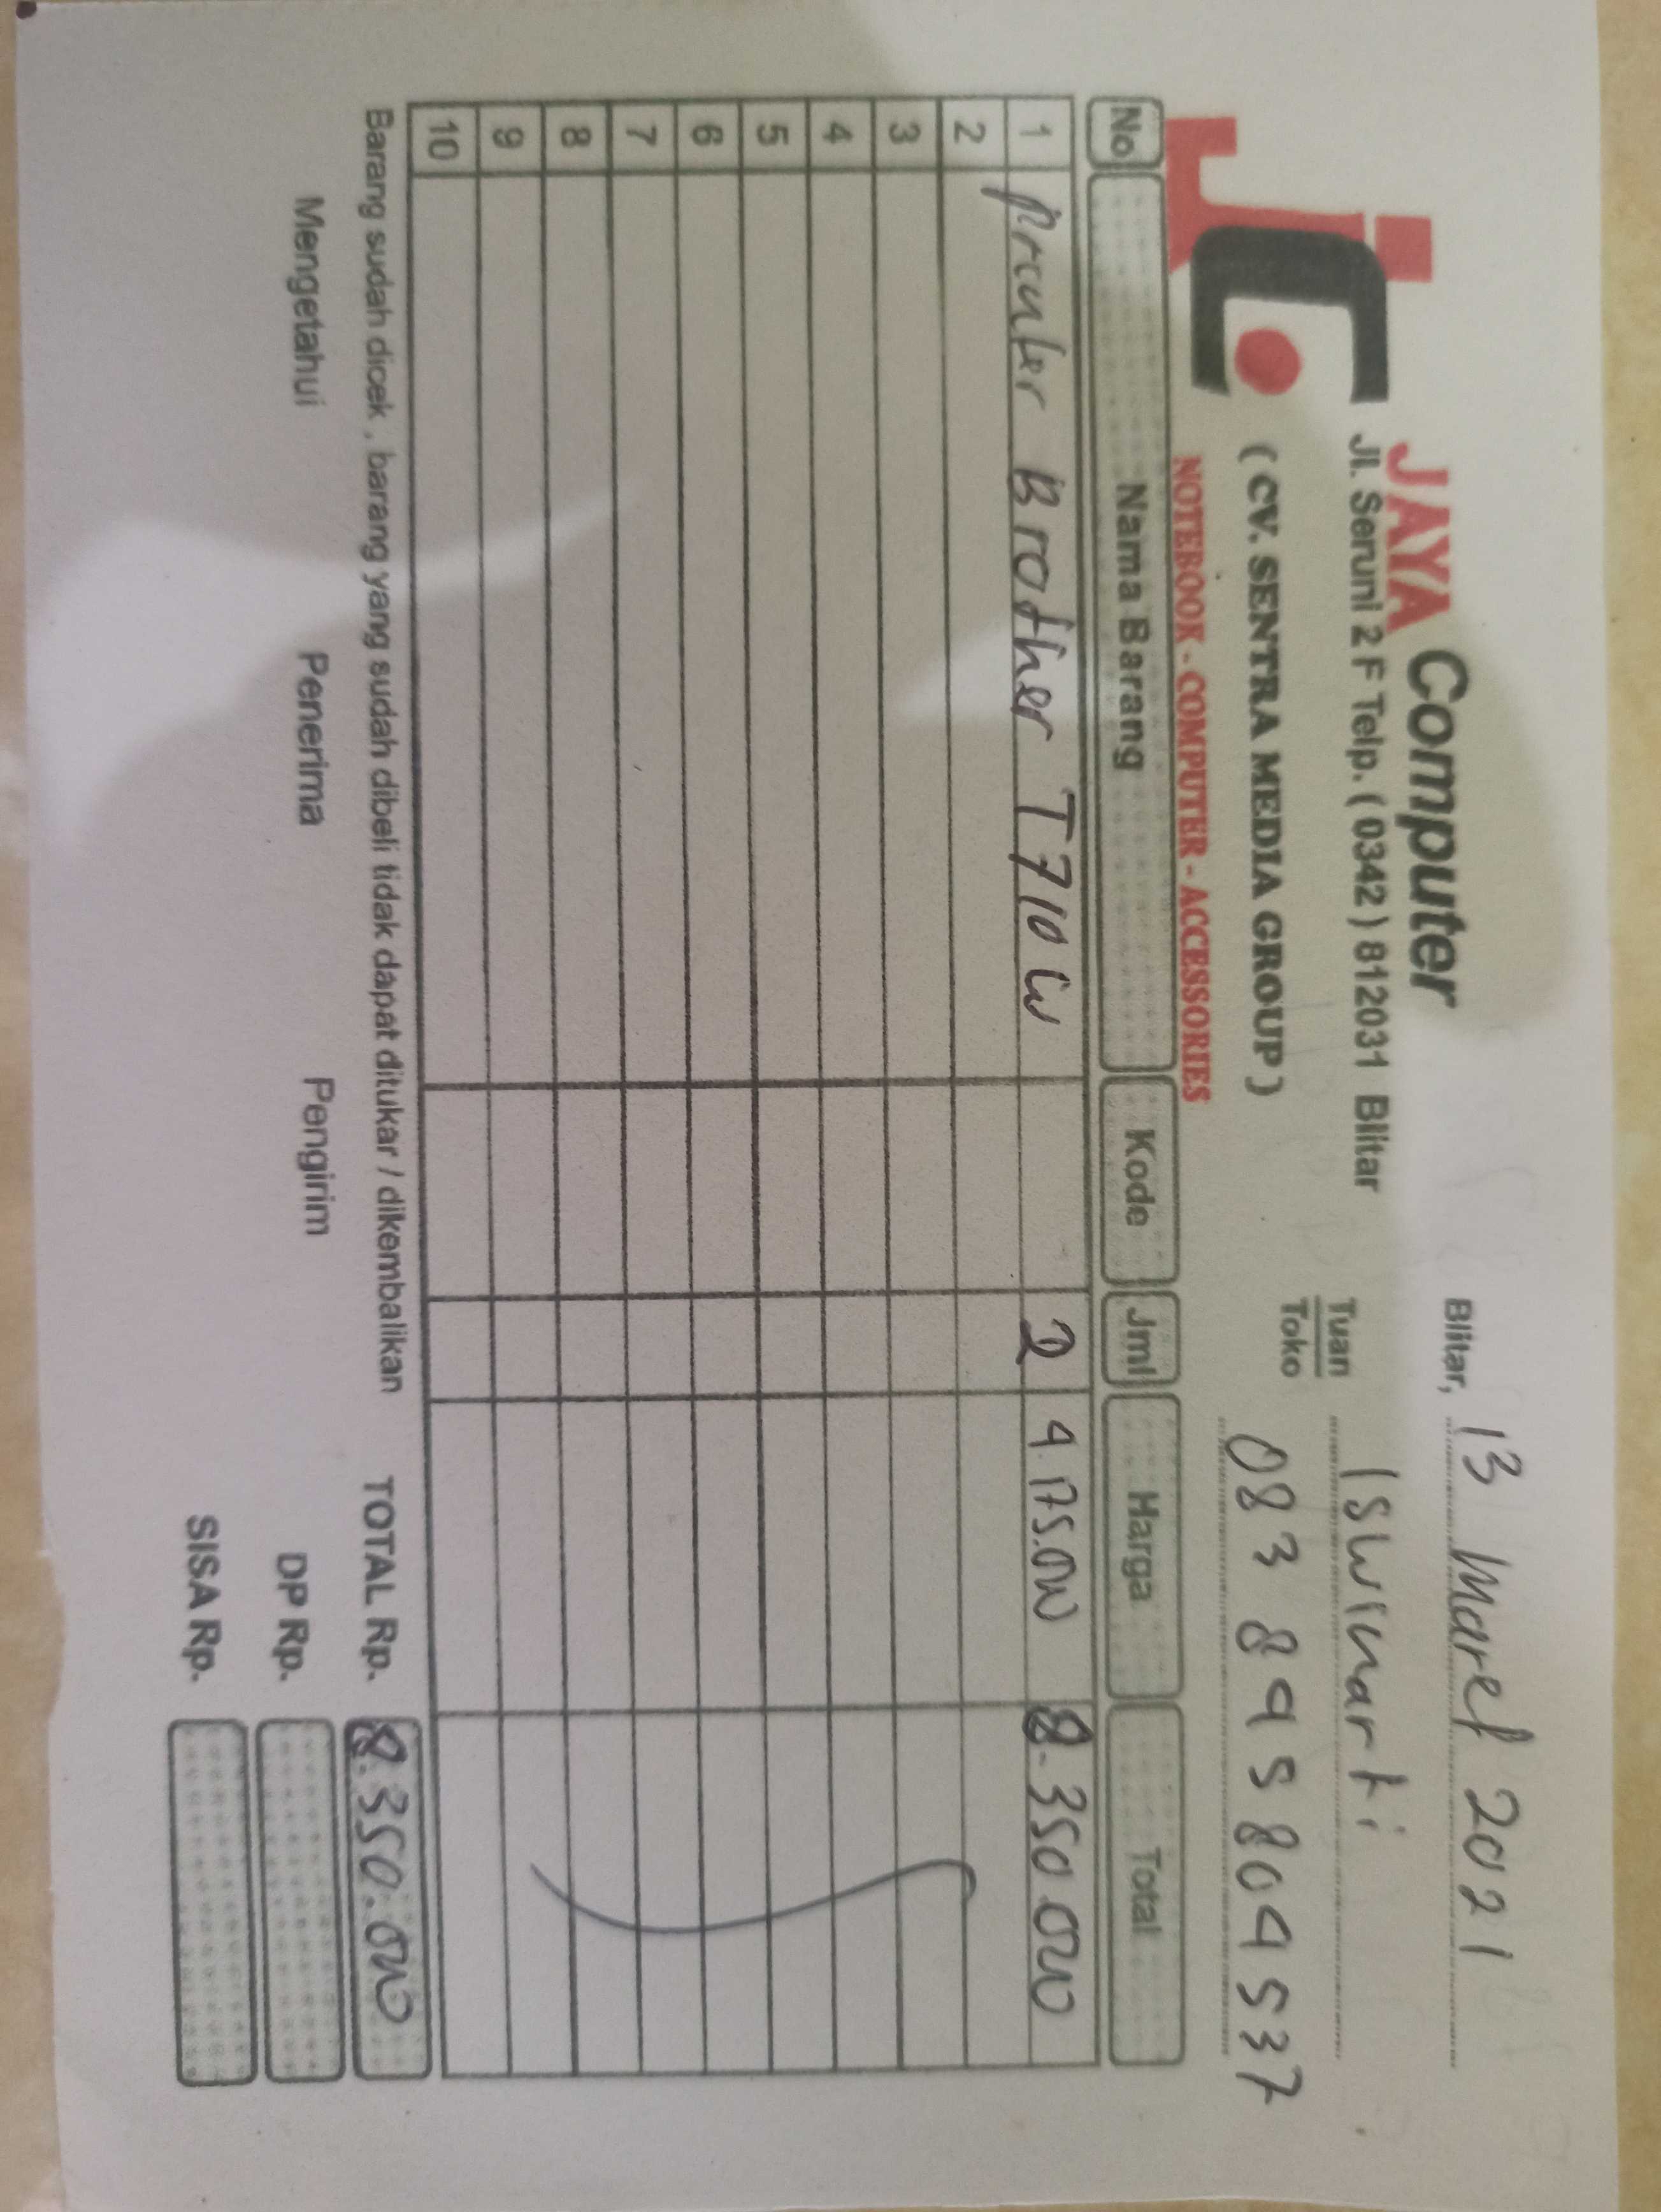 JC
JAYA Computer
Jl. Seruni 2 F Telp. ( 0342 ) 812031 Blitar
( CV. SENTRA MEDIA GROUP )
NOTEBOOK - COMPUTER - ACCESSORIES
Blitar, 13 Maret 2021
Tuan Iswinarti
Toko 083 895 804 537
No Nama Barang Kode Jml Harga Total
1 Printer Brother T710W 2 4.175.000 8.350.000
2
3
4
5
6
7
8
9
10
Barang sudah dicek , barang yang sudah dibeli tidak dapat ditukar / dikembalikan TOTAL Rp. 8.350.000
Mengetahui Penerima Pengirim DP Rp.
SISA Rp.